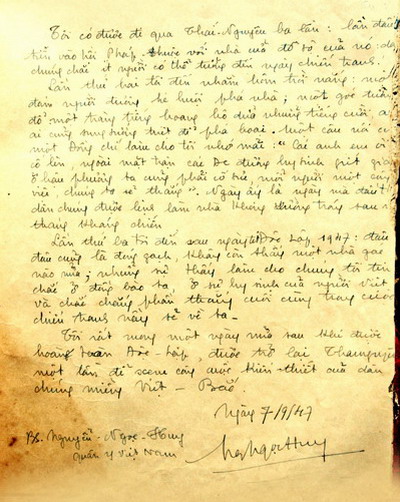 Tôi có được đi qua Thái-Nguyên ba lần: lần đầu
tiên vào hồi Pháp-thuộc với nhà cửa đồ sộ của nó: dân
chúng chắc ít người có thể tưởng đến ngày chiến tranh.
Lần thứ hai tôi đến nhằm hôm trời nắng: một
đám người đương hè lưới phá nhà; một góc tường
đổ một tràng tiếng hoang hô dưới những tiếng cười, ai
ai cũng sung sướng triệt để phá hoại. Một câu nói của
một Đồng chí làm cho tôi nhớ mãi: "Các anh em ơi
cố lên, ngoài mặt trận các đc đương hy sinh giết giặc
ở hậu phương ta cũng phải có sức, mỗi người một công
việc, chúng ta sẽ thắng". Ngày ấy là ngày mà đầu tiên
dân chúng được lệnh làm nhà không thường trầy sau
tháng kháng chiến
Lần thứ ba tôi đến sau ngày Độc Lập 1947: đâu
đâu cũng là đống gạch, không còn thấy một nhà gạch
nào nữa; nhưng sẽ thấy làm cho chúng tôi tin
chắc ở đồng bào ta, ở sự hy sinh của người Việt
và chắc chắn phần thắng cuối cùng trong cuộc
chiến tranh này sẽ về ta.
Tôi rất mong một ngày nữa sau khi được
hoàn toàn Độc-Lập, được trở lại Thái nguyên
một lần để xem công cuộc kiến-thiết của dân
chúng miền Việt-Bắc.
Ngày 7/9/47
BS. Nguyễn-Ngọc-Huy
Quân y Việt Nam